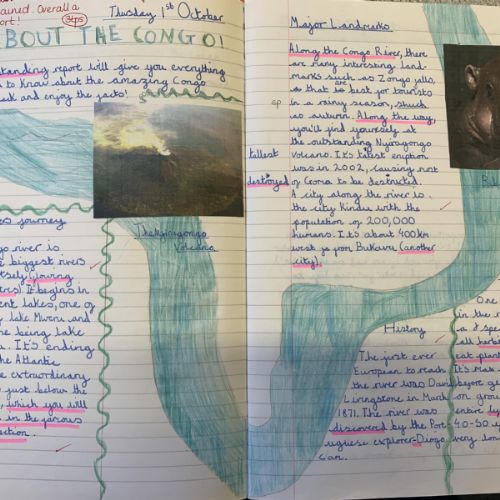 ained. Overall a
ort!
3tps
Thursday 1st October
ABOUT THE CONGO!
standing report will give you everything
to know about the amazing Congo
eck and enjoy the facts!
The Nyiragongo
Volcano
rs journey
go river is
e biggest rivers
tsely (flowing
ters). It begins in
ent lakes, one of
lake Mweru and
e being lake
u. It's ending
the Atlantic
e extraordinary
just below the
, which you will
in the famous
ection.
Major Landmarks
Along the Congo River, there
are many interesting land-
marks such as Zongo falls,
are
as that is best for tourists
sp
in a rainy season, shuch
as autumn. Along the way,
you'll find yourself at
the outstanding Nyiragongo
tallest
volcano. It's talest eruption
was in 2002, causing most
destroyed
of Goma to be destructed.
A city along the river is
the city Kindu with the
population of 200,000
humans. It's about 400km
west from Bukavu (another
city).
History
The first ever
European to reach
the river was David
Livingstone in March
1871. The river was
discovered by the Port-
uguese explorer-Diogo
Cam.
One
in the r
a. I spe
all herbi
eat plant
It's max
before ge
on grou
entire li
40-50 y
very lon